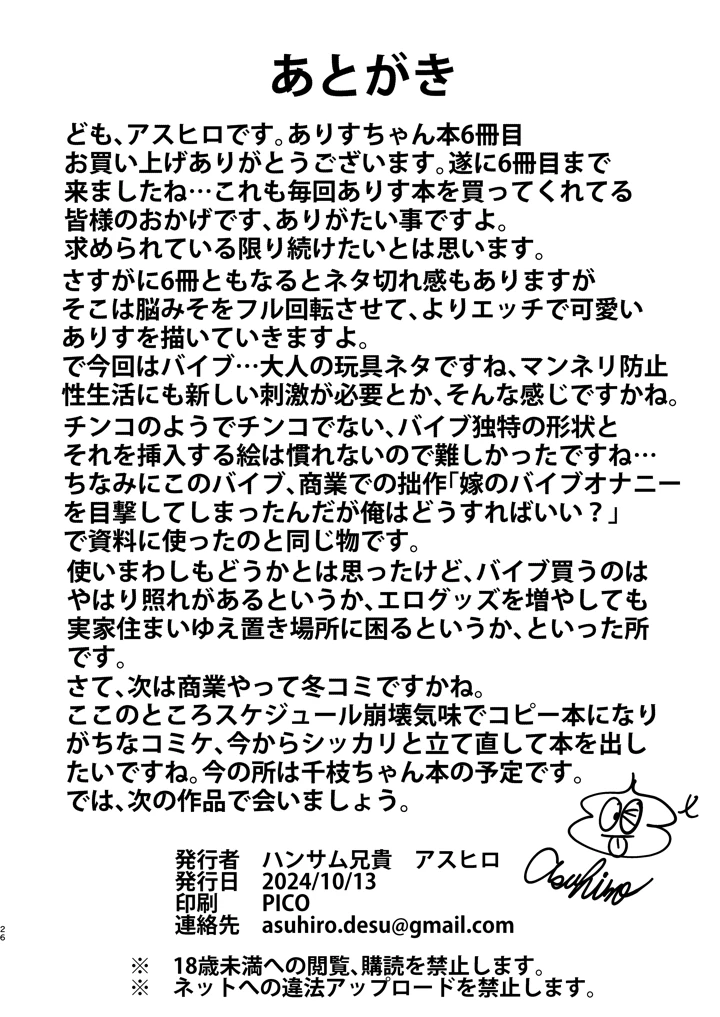 あとがき
ども、アスヒロです。ありすちゃん本6冊目
お買い上げありがとうございます。遂に6冊目まで
来ましたね…これも毎回ありす本を買ってくれてる
皆様のおかげです、ありがたい事ですよ。
求められている限り続けたいとは思います。
さすがに6冊ともなるとネタ切れ感もありますが
そこは脳みそをフル回転させて、よりエッチで可愛い
ありすを描いていきますよ。
で今回はバイブ…大人の玩具ネタですね、マンネリ防止
性生活にも新しい刺激が必要とか、そんな感じですかね。
チンコのようでチンコでない、バイブ独特の形状と
それを挿入する絵は慣れないので難しかったですね…
ちなみにこのバイブ、商業での拙作「嫁のバイブオナニー
を目撃してしまったんだが俺はどうすればいい？」
で資料に使ったのと同じ物です。
使いまわしもどうかとは思ったけど、バイブ買うのは
やはり照れがあるというか、エログッズを増やしても
実家住まいゆえ置き場所に困るというか、といった所
です。
さて、次は商業やって冬コミですかね。
ここのところスケジュール崩壊気味でコピー本になり
がちなコミケ、今からシッカリと立て直して本を出し
たいですね。今の所は千枝ちゃん本の予定です。
では、次の作品で会いましょう。
asuhiro
発行者　ハンサム兄貴　アスヒロ
発行日　2024/10/13
印刷　PICO
連絡先　asuhiro.desu@gmail.com
※　18歳未満への閲覧、購読を禁止します。
※　ネットへの違法アップロードを禁止します。
26